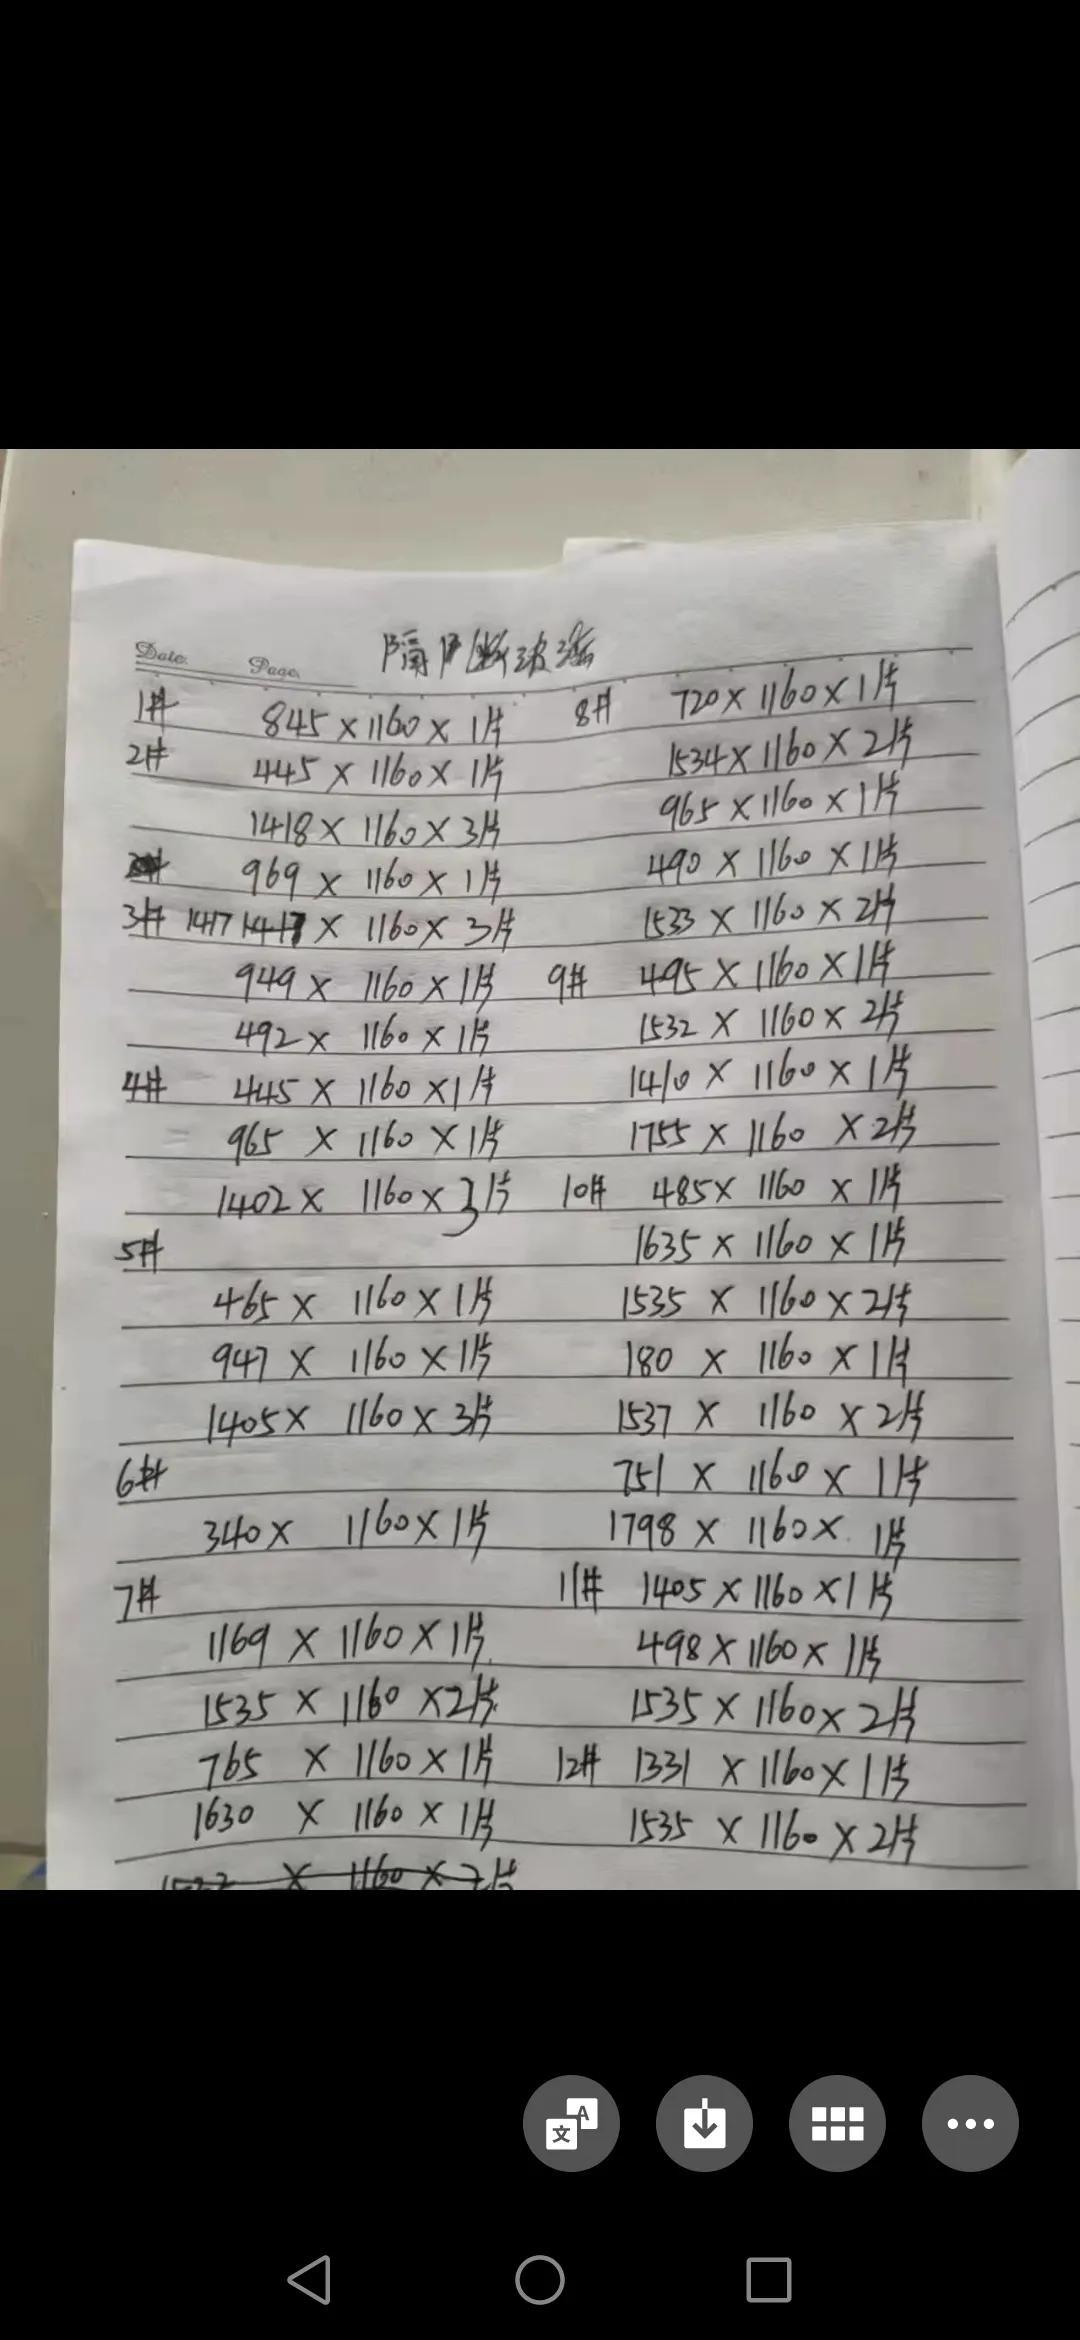 Date.
Page.
隔断玻璃
1# 845×1160×1片
2# 445×1160×1片
1418×1160×3片
969×1160×1片
3# 1417 1417×1160×3片
949×1160×1片
492×1160×1片
4# 445×1160×1片
965×1160×1片
1402×1160×3片
5#
465×1160×1片
947×1160×1片
1405×1160×3片
6#
340×1160×1片
7#
1169×1160×1片
1535×1160×2片
765×1160×1片
1630×1160×1片
×1160×2片
8# 720×1160×1片
1534×1160×2片
965×1160×1片
490×1160×1片
1533×1160×2片
9# 495×1160×1片
1532×1160×2片
1410×1160×1片
1755×1160×2片
10# 485×1160×1片
1635×1160×1片
1535×1160×2片
180×1160×1片
1537×1160×2片
751×1160×1片
1798×1160×1片
11# 1405×1160×1片
498×1160×1片
1535×1160×2片
12# 1331×1160×1片
1535×1160×2片
文A